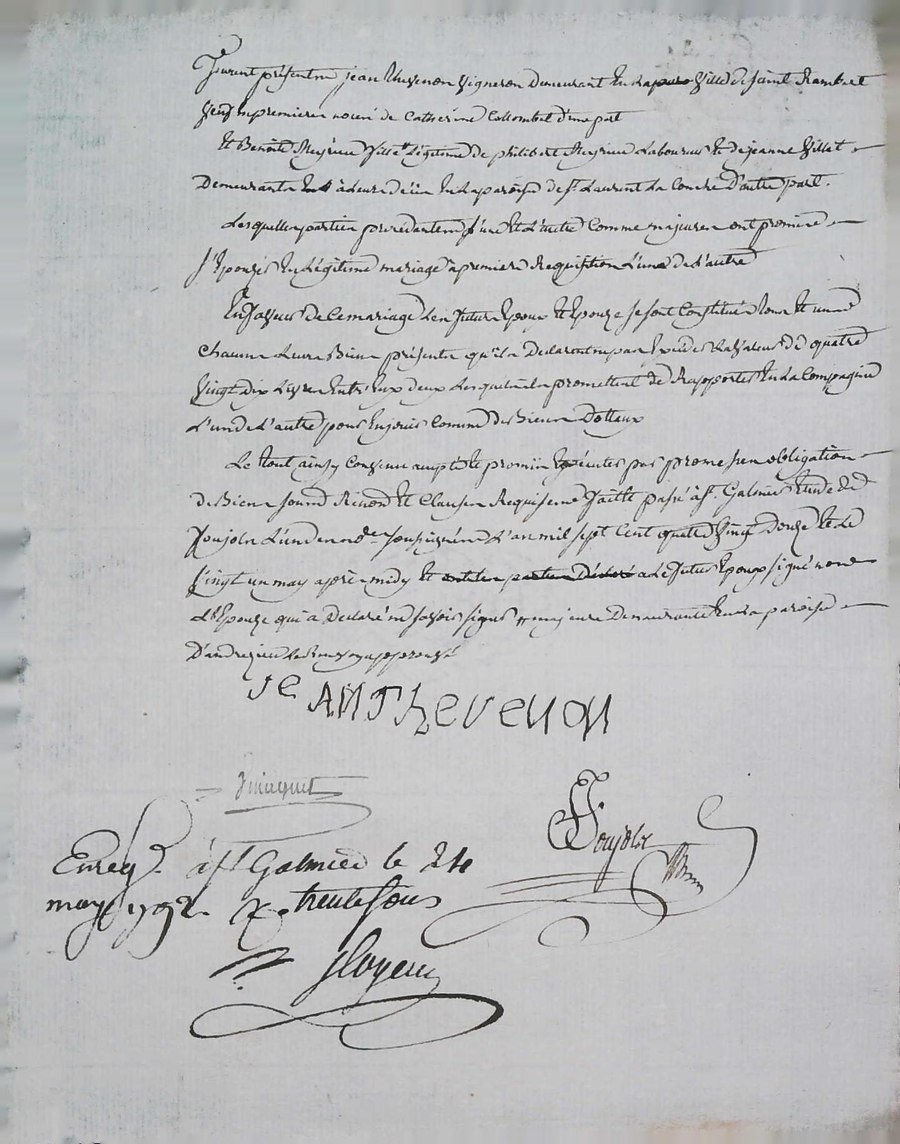 furent présentm jean thevenon vigneron demeurant En la ville de saint Rambert
veuf En premieres noces de Catherine Collombet d'une part
Et Benoite Meyrieu fille légitime de philibert Meyrieu Laboureur Et de jeanne Villet
Demeurante En la paroisse de st Laurent La Conche D'autre part.
Lesquelles parties procedantes L'une Et L'autre Comme majeures ont promis
s'Epouser En légitime mariage a premiere Requisition L'une de L'autre
En faveur de Ce mariage Les futurs Epoux Et Epouze se sont Constitués tous Et uns
chacuns Leurs Biens présents qu'ils declarent de La valeur de quatre
Vingt Dix Livres Entr'Eux deux Lesquels ils promettent de Rapporter En La Compagnie
L'un de L'autre pour En jouir Comme de Biens Dotteaux
Le tout ainsy Convenu accepté Et promis Executer par promesses obligation
de Biens soumis Renon Et Clauses Requises fait Et passé à st Galmier Etude de
Poujolx L'un des nores soussignés L'an mil sept Cent quatre vingt Douze Et Le
Vingt un may après midy Et a Le futur Epoux signé non
L'Epouze qui a Declaré ne savoir signer majeure Demeurante En La paroisse
D'andrezieu Le Renvoy approuvé
jeAN Thevenon
Poujolx
Enregé. à st Galmier le 24
may 1792. trente sous